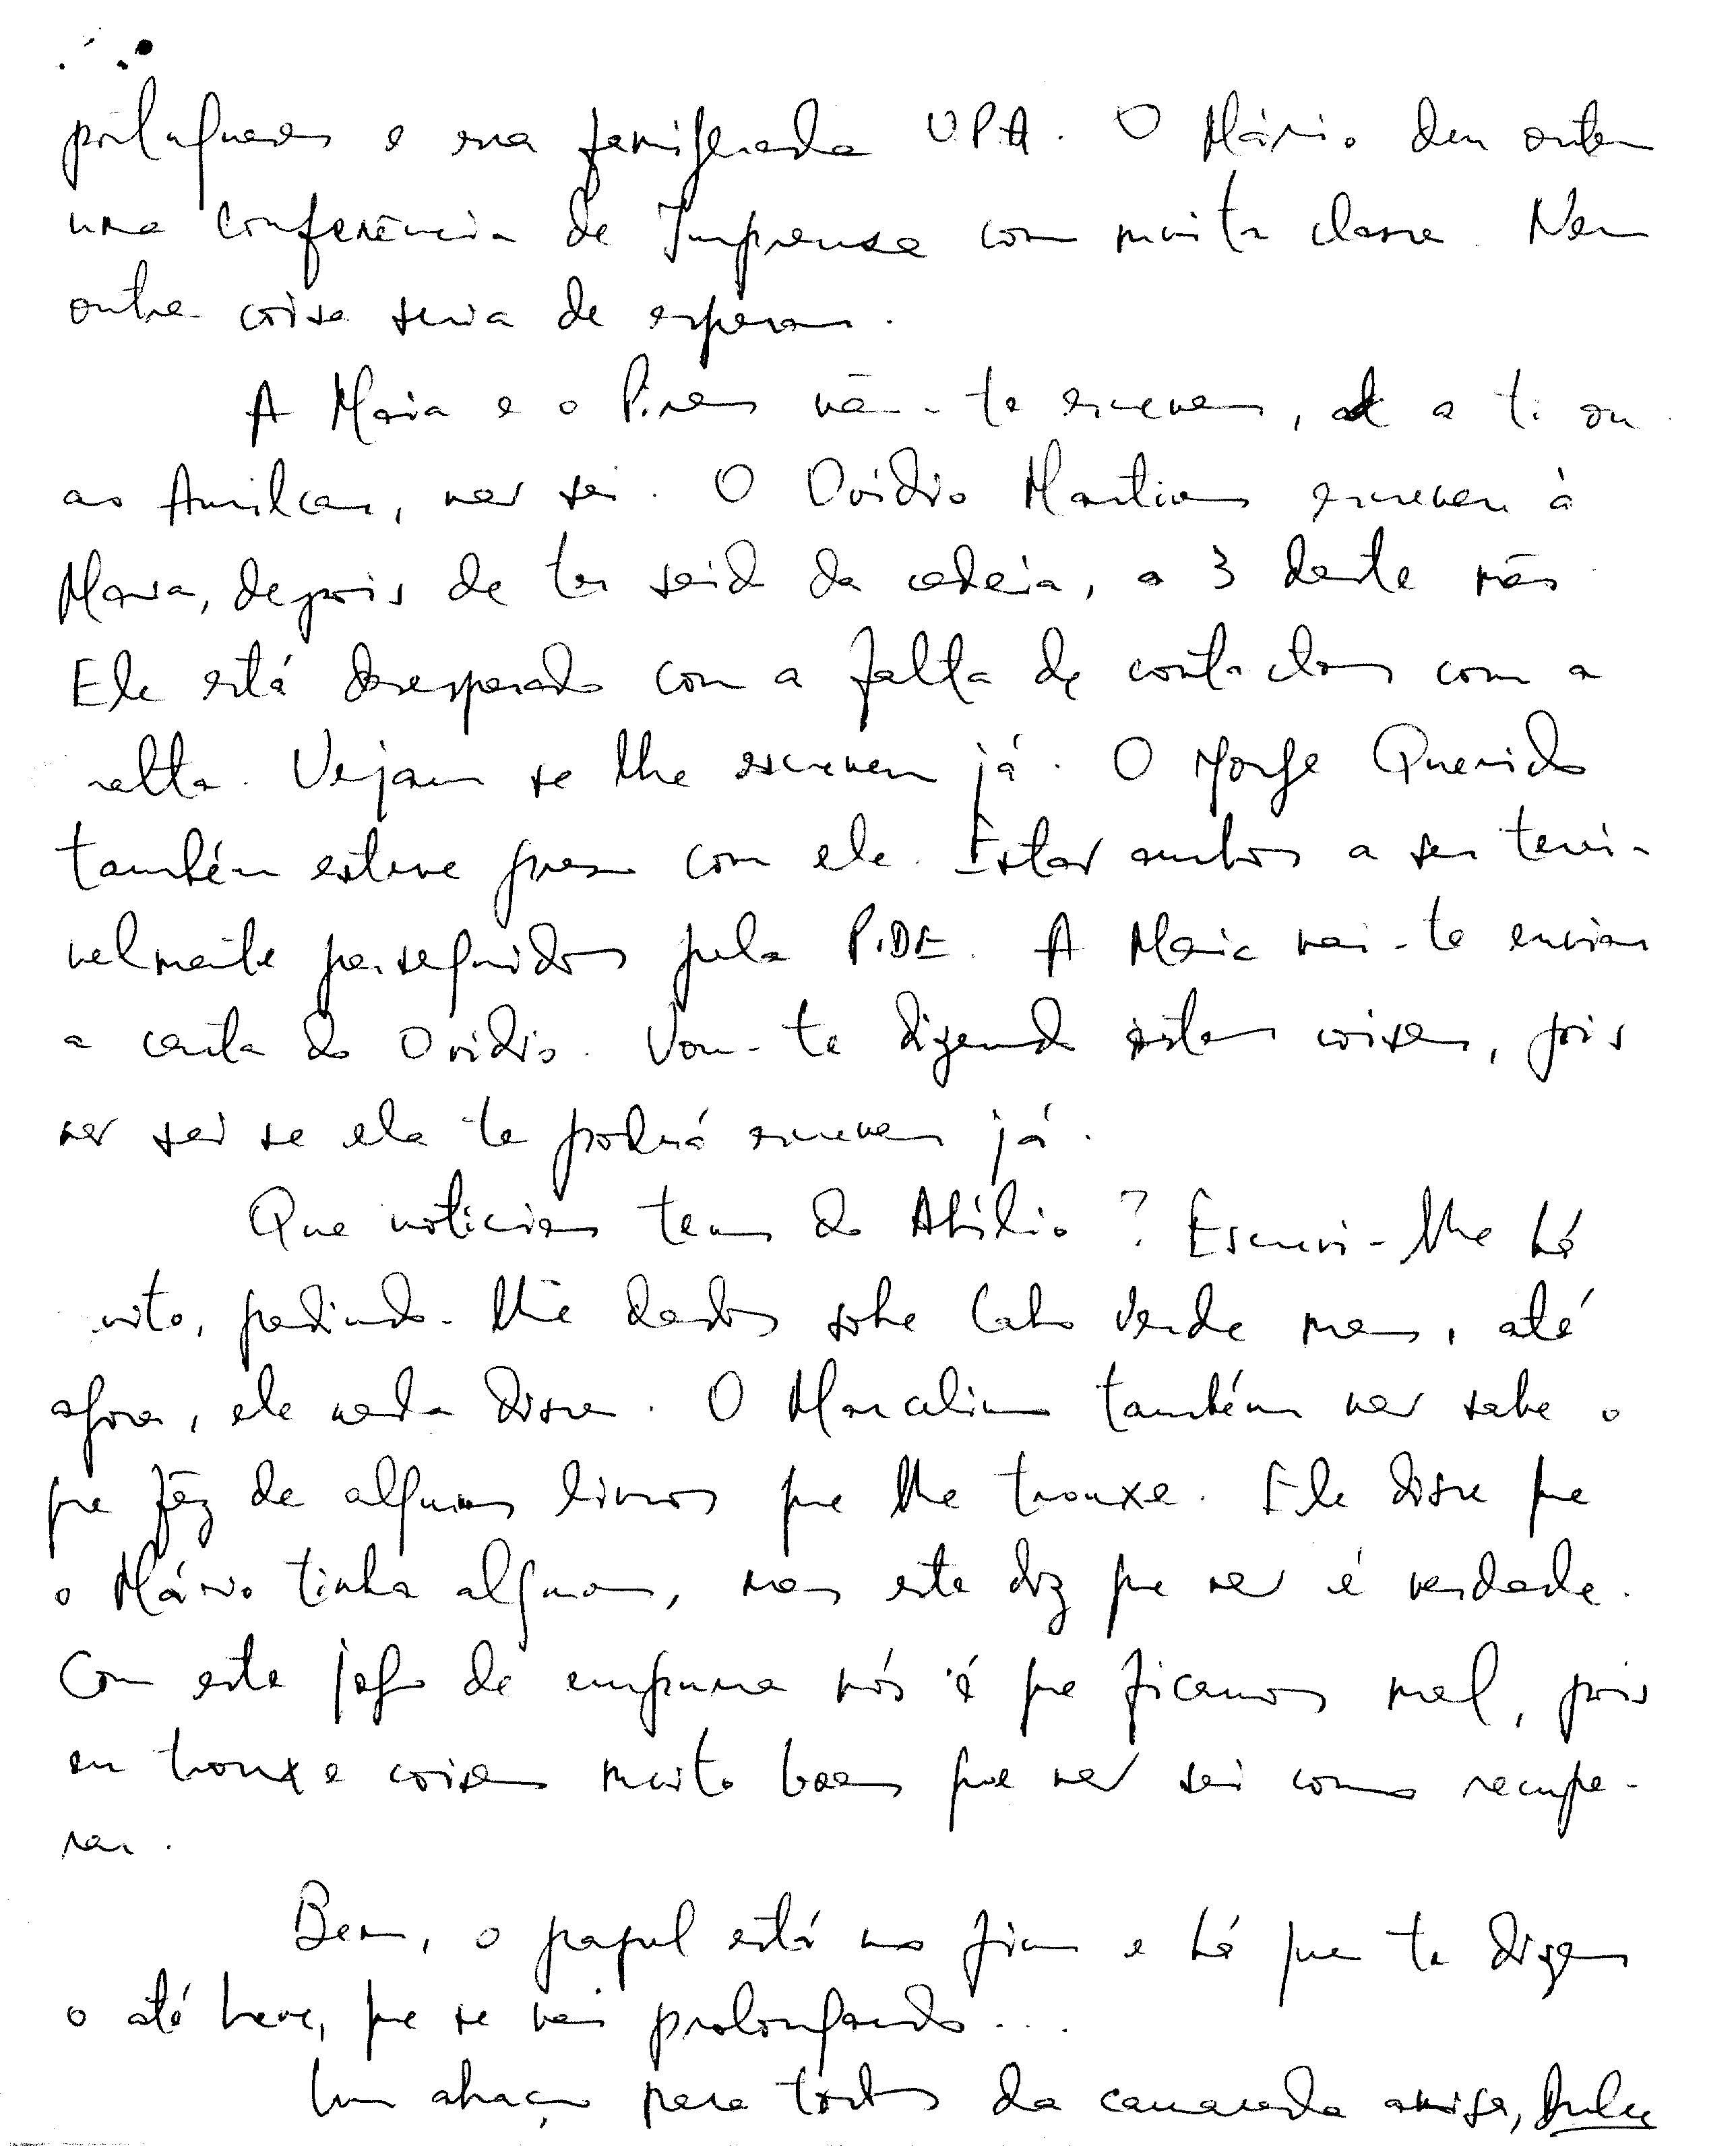 portugueses e essa famigerada UPA. O Mário deu ontem
uma conferência de Imprensa com muita classe. Nem
outra coisa seria de esperar.
A Maria e o Pires vão-te escrever, a ti ou
ao Amilcar, não sei. O Ovídio Martins escreveu à
Maria, depois de ter saido da cadeia, a 3 deste mês
Ele está desesperado com a falta de contactos com a
malta. Vejam se lhe escrevem já. O Jorge Querido
também esteve preso com ele. Estão ambos a ser terri-
velmente perseguidos pela PIDE. A Maria vai-te enviar
a carta do Ovidio. Vou-te dizendo estas coisas, pois
não sei se ela te poderá escrever já.
Que noticias tens do Abílio? Escrevi-lhe há
muito, pedindo-lhe dados sobre Cabo Verde mas, até
agora, ele nada disse. O Marcelino também não sabe o
que fêz de alguns livros que lhe trouxe. Ele disse que
o Mário tinha alguns, mas este diz que não é verdade.
Com este jogo de empurra nós é que ficamos mal, pois
eu trouxe coisas muito boas que não sei como recupe-
rar.
Bem, o papel está no fim e há que te dizer
o até breve, que se vai prolongando...
Um abraço para todos da camarada amiga, Dulce